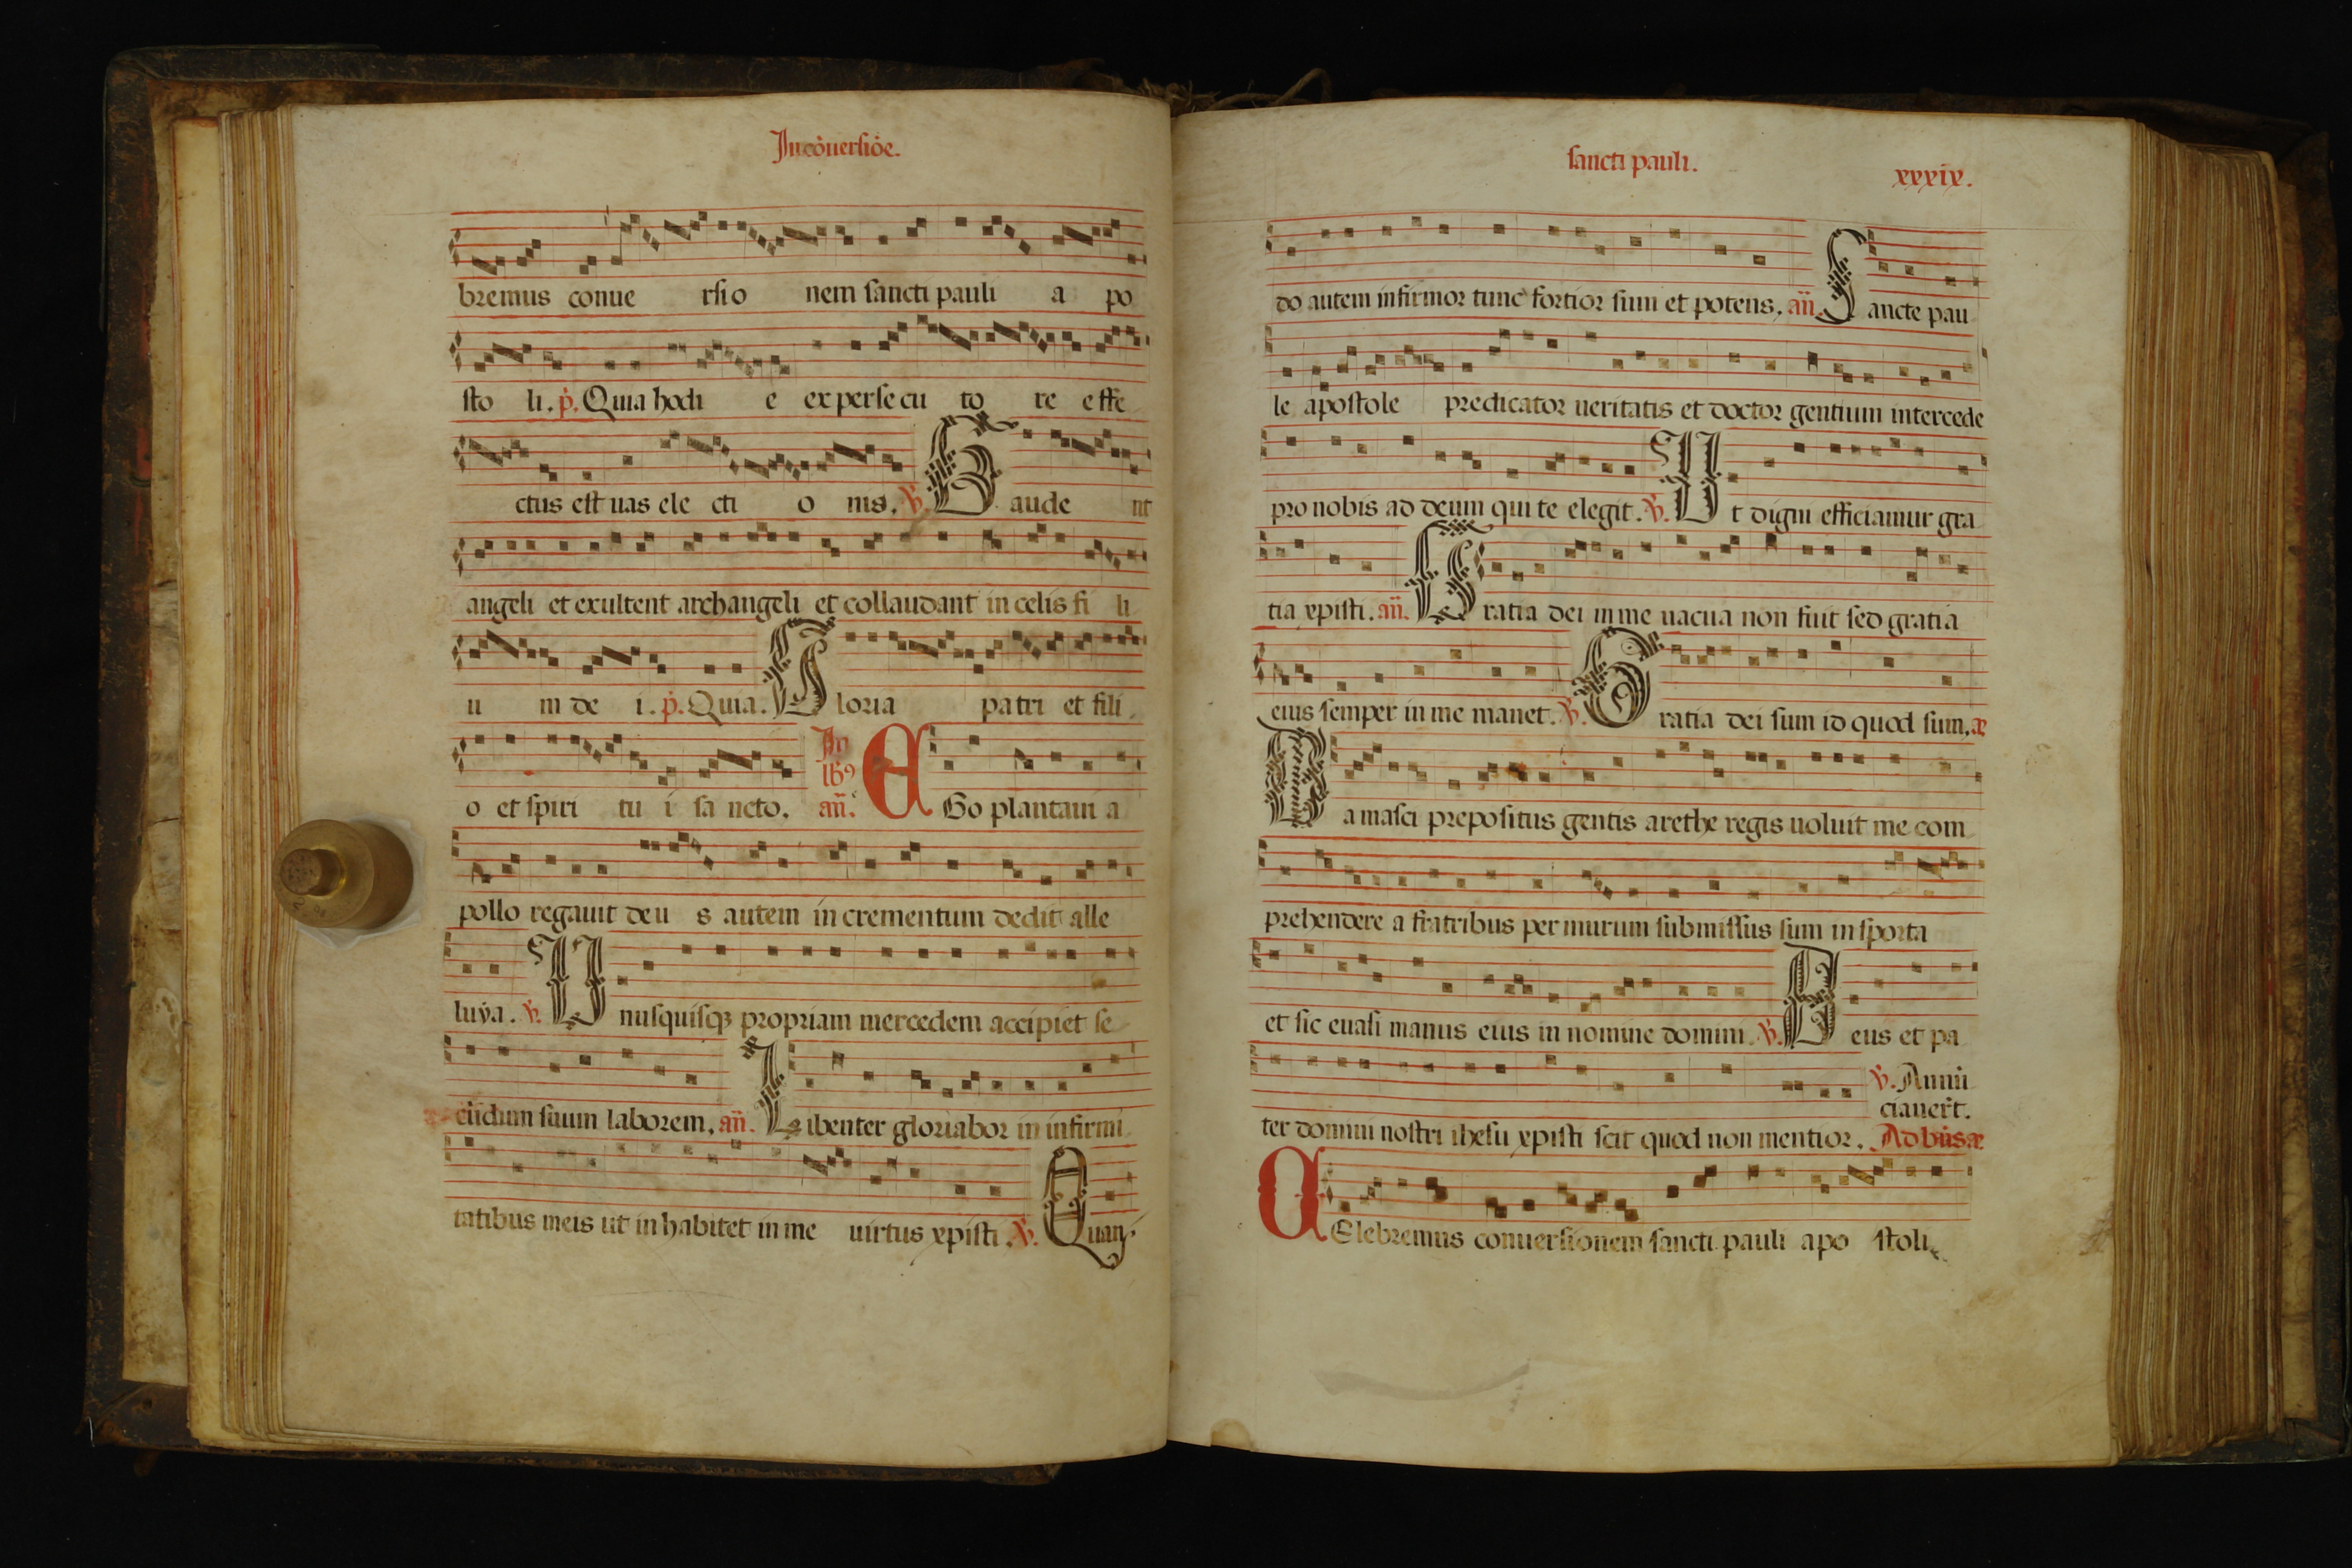 In cōuersiōe.
bremus conue rsio nem sancti pauli a po
sto li. p̄. Quia hodi e ex persecu to re effe
ctus est uas ele cti o nis. v̄. Gaude nt
angeli et exultent archangeli et collaudant in celis fi li
u m de i. p̄. Quia. Gloria patri et fili
o et spiri tu i sa ncto. In lb9 an̄. EGo plantaui a
pollo regauit deu s autem in crementum dedit alle
luya. v̄. Unusquisqꝫ propriam mercedem accipiet se
cūdum suum laborem. an̄. Libenter gloriabor in infirmi
tatibus meis ut inhabitet in me uirtus xpisti. v̄. Quan
sancti pauli.
xxxix.
do autem infirmor tunc fortior sum et potens. an̄. Sancte pau
le apostole predicator ueritatis et doctor gentium intercede
pro nobis ad deum qui te elegit. v̄. Ut digni efficiamur gra
tia xpisti. an̄. Gratia dei in me uacua non fuit sed gratia
eius semper in me manet. v̄. Gratia dei sum id quod sum. æ
Damasci prepositus gentis arethe regis uoluit me com
prehendere a fratribus per murum submissus sum in sporta
et sic euasi manus eius in nomine domini. v̄. Deus et pa
v̄. Annū
ciauer̄t.
ter domini nostri ihesu xpisti scit quod non mentior. Ad bn̄s æ
CElebremus conuersionem sancti pauli apo stoli